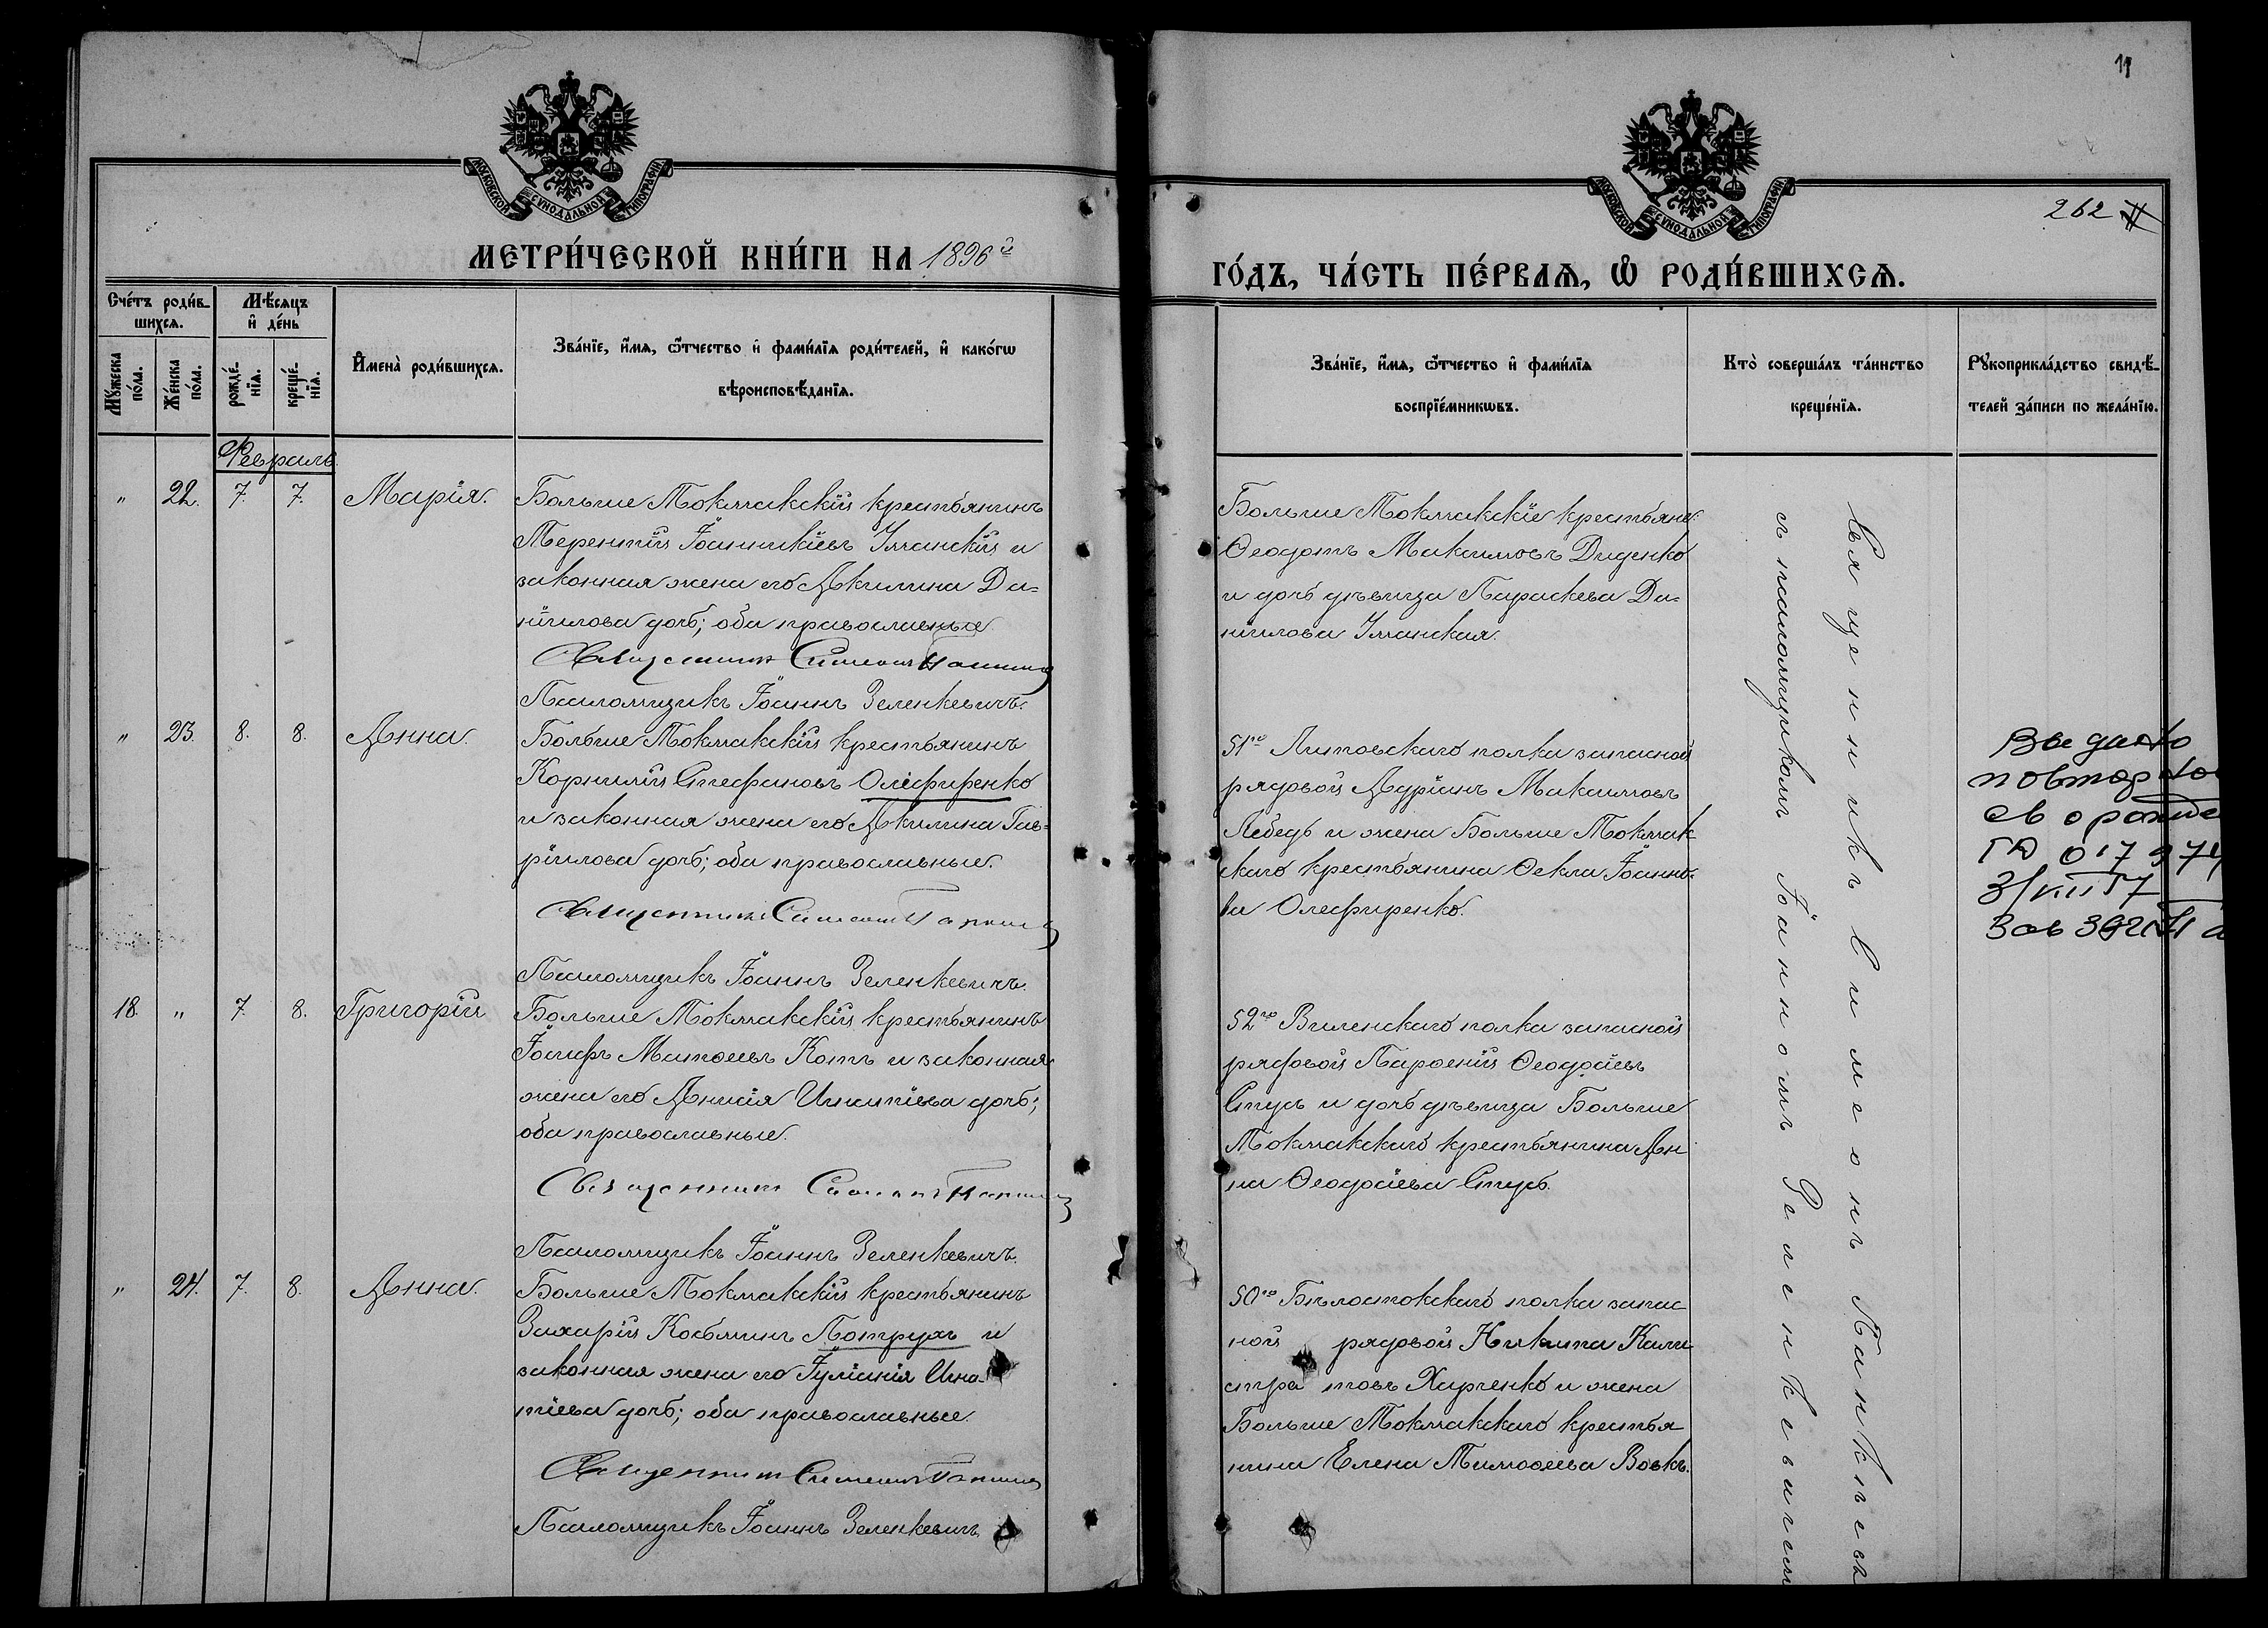 11
262
МОСКОВСКОЙ СѴНОДАЛЬНОЙ ТИПОГРАФІИ
МОСКОВСКОЙ СѴНОДАЛЬНОЙ ТИПОГРАФІИ
МЕТРИ́ЧЕСКОЙ КНИ́ГИ НА 1896й
ГО́ДЪ, ЧА́СТЬ ПЕ́РВАѦ, Ѡ҆ РОДИ́ВШИХСѦ.
Сче́тъ роди́в-
шихсѧ.
Мꙋ́жеска по́ла.
Же́нска по́ла.
Мѣ́сѧцъ
и҆ де́нь
рожде́-
нїѧ.
креще́-
нїѧ.
И҆мена̀ роди́вшихсѧ.
Зва́нїе, и҆́мѧ, ѻ҆́тчество и҆ фами́лїѧ роди́телей, и҆ како́гѡ
вѣроисповѣ́данїѧ.
Зва́нїе, и҆́мѧ, ѻ҆́тчество и҆ фами́лїѧ
воспрїе́мникѡвъ.
Кто̀ соверша́лъ та́инство
креще́нїѧ.
Рꙋкоприкла́дство свидѣ́-
телей за́писи по жела́нїю.
Февраль
" 22. 7. 7. Марія.
Больше Токмакскій крестьянинъ
Терентій Іоанникіевъ Уманскій и
законная жена его Акилина Да=
ніилова дочь; оба православные
Священникъ Симеонъ
Псаломщикъ Іоаннъ Зеленкевичъ.
Больше Токмакскіе крестьяне:
Ѳеодотъ Максимовъ Диденко
и дочь дѣвица Параскева Да=
ніилова Уманская.
" 23. 8. 8. Анна.
Больше Токмакскій крестьянинъ
Корнилій Стефановъ Олефиренко
и законная жена его Акилина Гав=
ріилова дочь; оба православные.
Священникъ Симеонъ
Псаломщикъ Іоаннъ Зеленкевичъ.
51го Литовскаго полка запасной
рядовой Адріанъ Максимовъ
Лебедь и жена Больше Токмак
скаго крестьянина Ѳекла Іоанно-
ва Олефиренко.
Выдано
повторно
св о рожде
ГЮ 017974
3/VIII 57
Зав ЗАГС
18. " 7. 8. Григорій
Больше Токмакскій крестьянинъ
Іосифъ Матѳіевъ Котъ и законная
жена его Анисія Игнатіева дочь;
оба православные.
Священникъ Симеонъ
Псаломщикъ Іоаннъ Зеленкевичъ.
52го Виленскаго полка запасной
рядовой Парѳеній Ѳеодосіевъ
Стусь и дочь дѣвица Больше
Токмакскаго крестьянина Ан
на Ѳеодосіева Стусь.
" 24. 7. 8. Анна.
Больше Токмакскій крестьянинъ
Захарій Косьминъ Потрухъ и
законная жена его Іуліанія Игна-
тіева дочь; оба православные.
Священникъ Симеонъ
Псаломщикъ Іоаннъ Зеленкевичъ
50го Бѣлостокскаго полка запас
ной рядовой Никита Кали
стра товъ Харченко и жена
Больше Токмакскаго крестья
нина Елена Тимоѳеева Вовкъ.
Священникъ Симеонъ Панкѣевъ
съ псаломщикомъ Іоанномъ Зеленкевичемъ